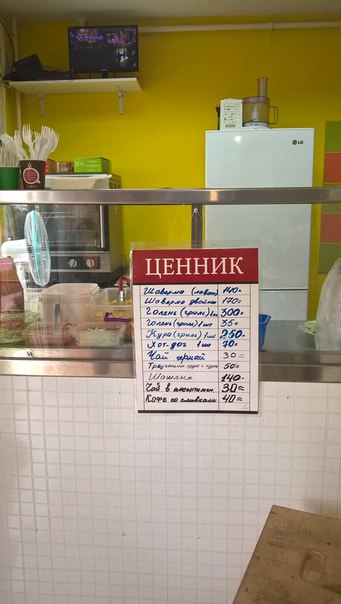 LG
ЦЕННИК
Шаверма (лаваш) 140=
Шаверма двойная 170=
Голень (гриль) 300=
Голень (гриль) 1 шт 35=
Кура (гриль) 1 шт 250=
Хот-дог 1 шт 70=
Чай 30=
50=
Шашлык 140=
Чай в ассортимен. 30=
Кофе со сливками 40=